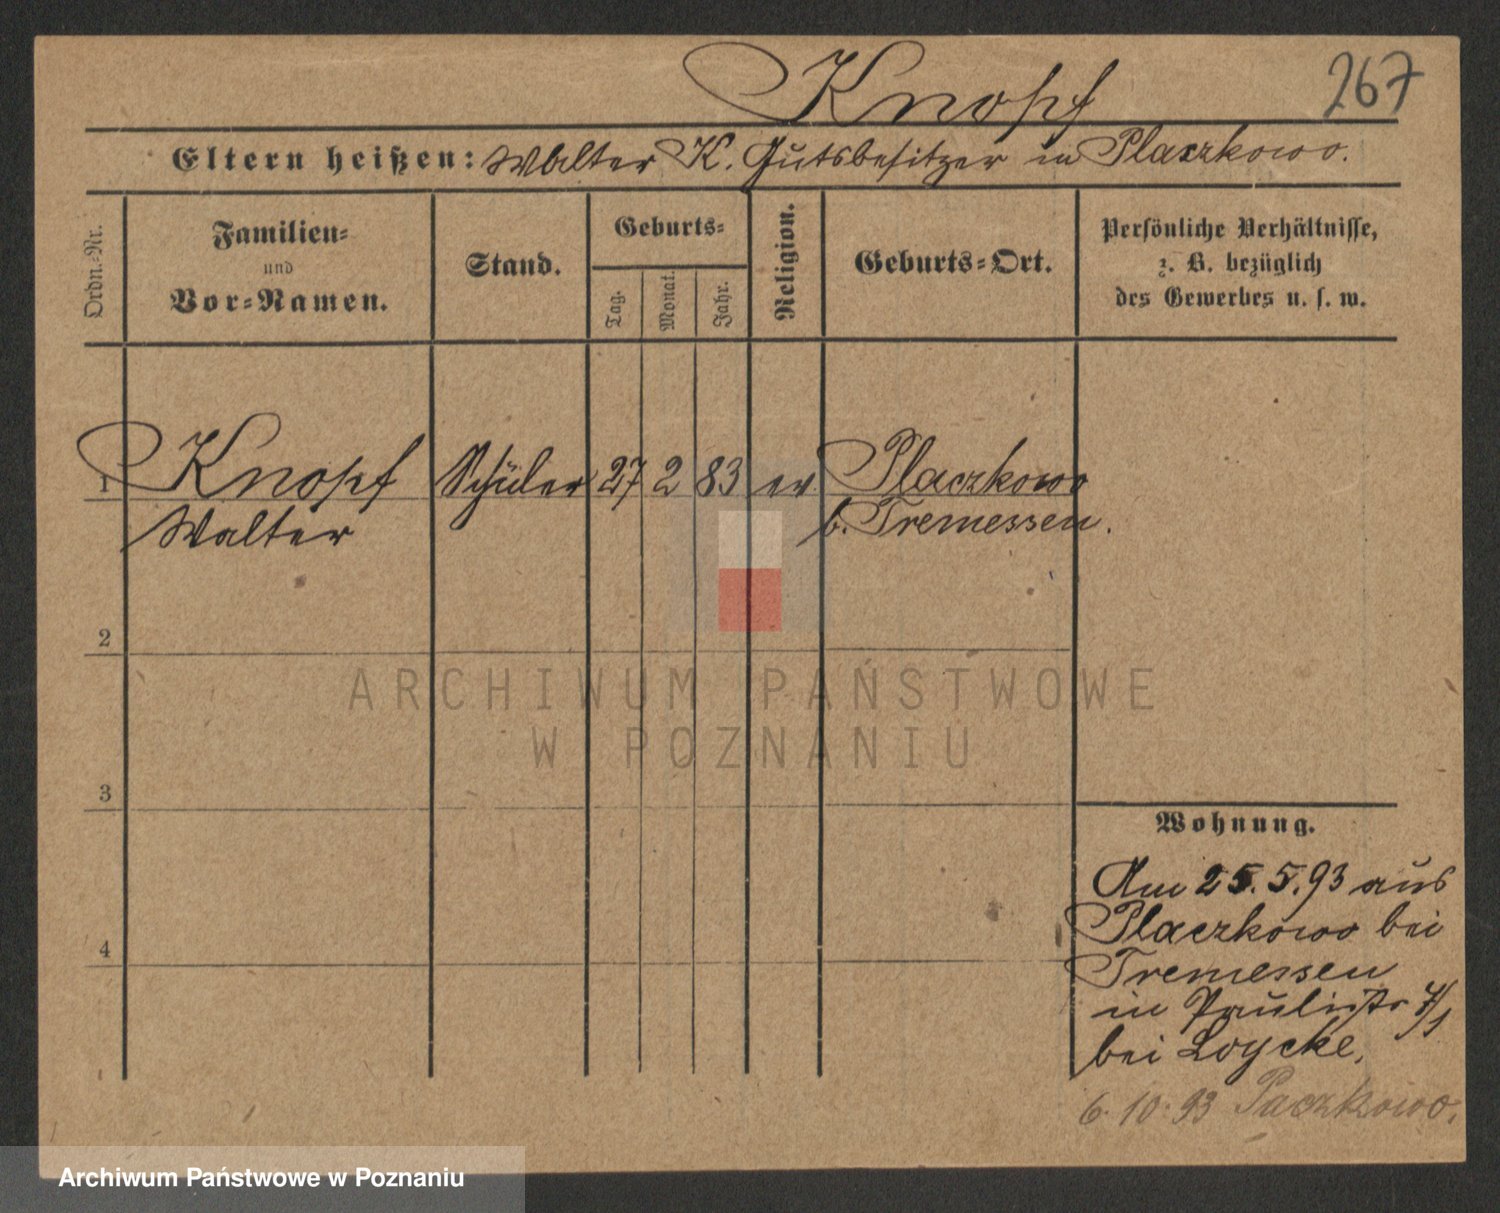 Knopf 267
Eltern heißen: Walter K. Gutsbesitzer in Placzkowo.
Ordn.-Nr.
Familien-
und
Vor-Namen.
Stand.
Geburts-
Tag.
Monat.
Jahr.
Religion.
Geburts-Ort.
Persönliche Verhältnisse,
z. B. bezüglich
des Gewerbes u. s. w.
1 Knopf Schüler 27 2 83 ev Placzkowo
Walter b. Tremessen.
2
3
4
Wohnung.
Am 25.5.93 aus
Placzkowo bei
Tremessen
in Paulistr 7/1
bei Loycke.
6.10.93 Paczkowo.
ARCHIWUM PAŃSTWOWE
W POZNANIU
Archiwum Państwowe w Poznaniu